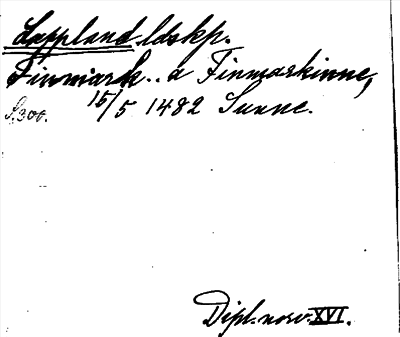 Lappland ldskp.
Finmark.. a Finmarkinne,
S.300. 15/5 1482 Sunne.
Dipl. norv. XVI.